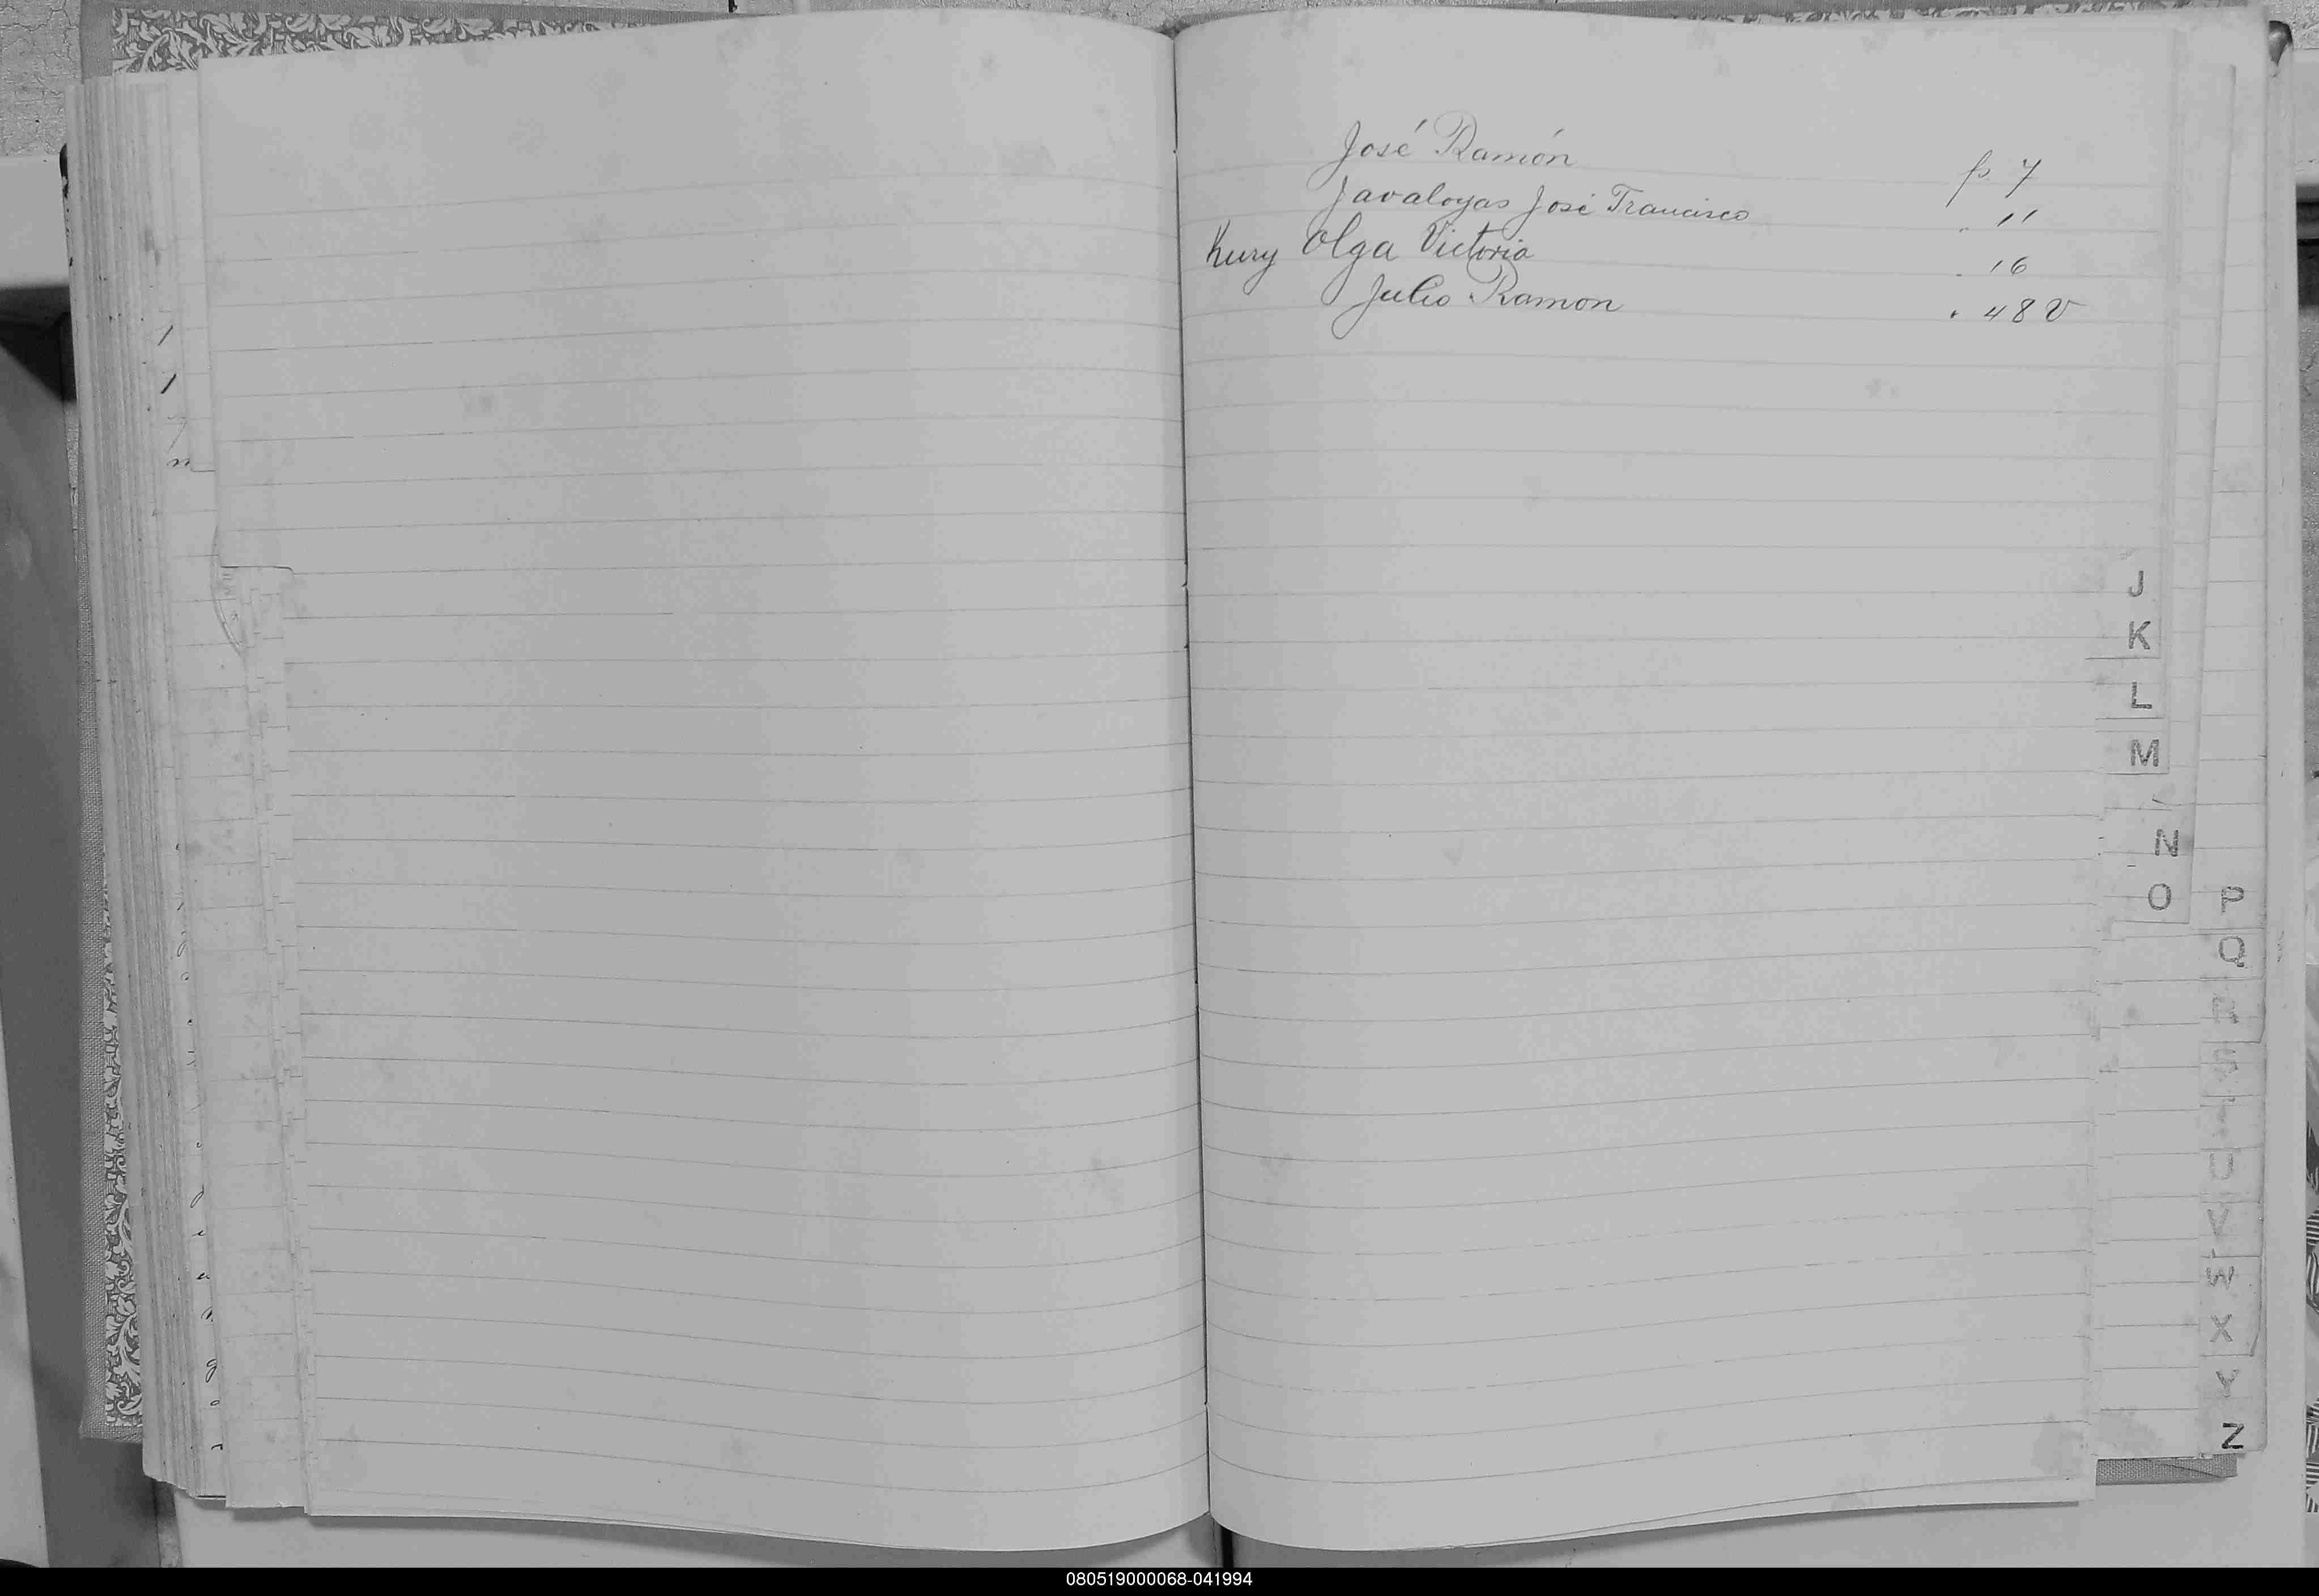 José Ramón fs. 7
Javaloyas José Francisco " 11
Kury Olga Victoria " 16
Julio Ramon " 48 v
J
K
L
M
N
O
P
Q
R
S
U
V
W
X
Y
Z
080519000068-041994